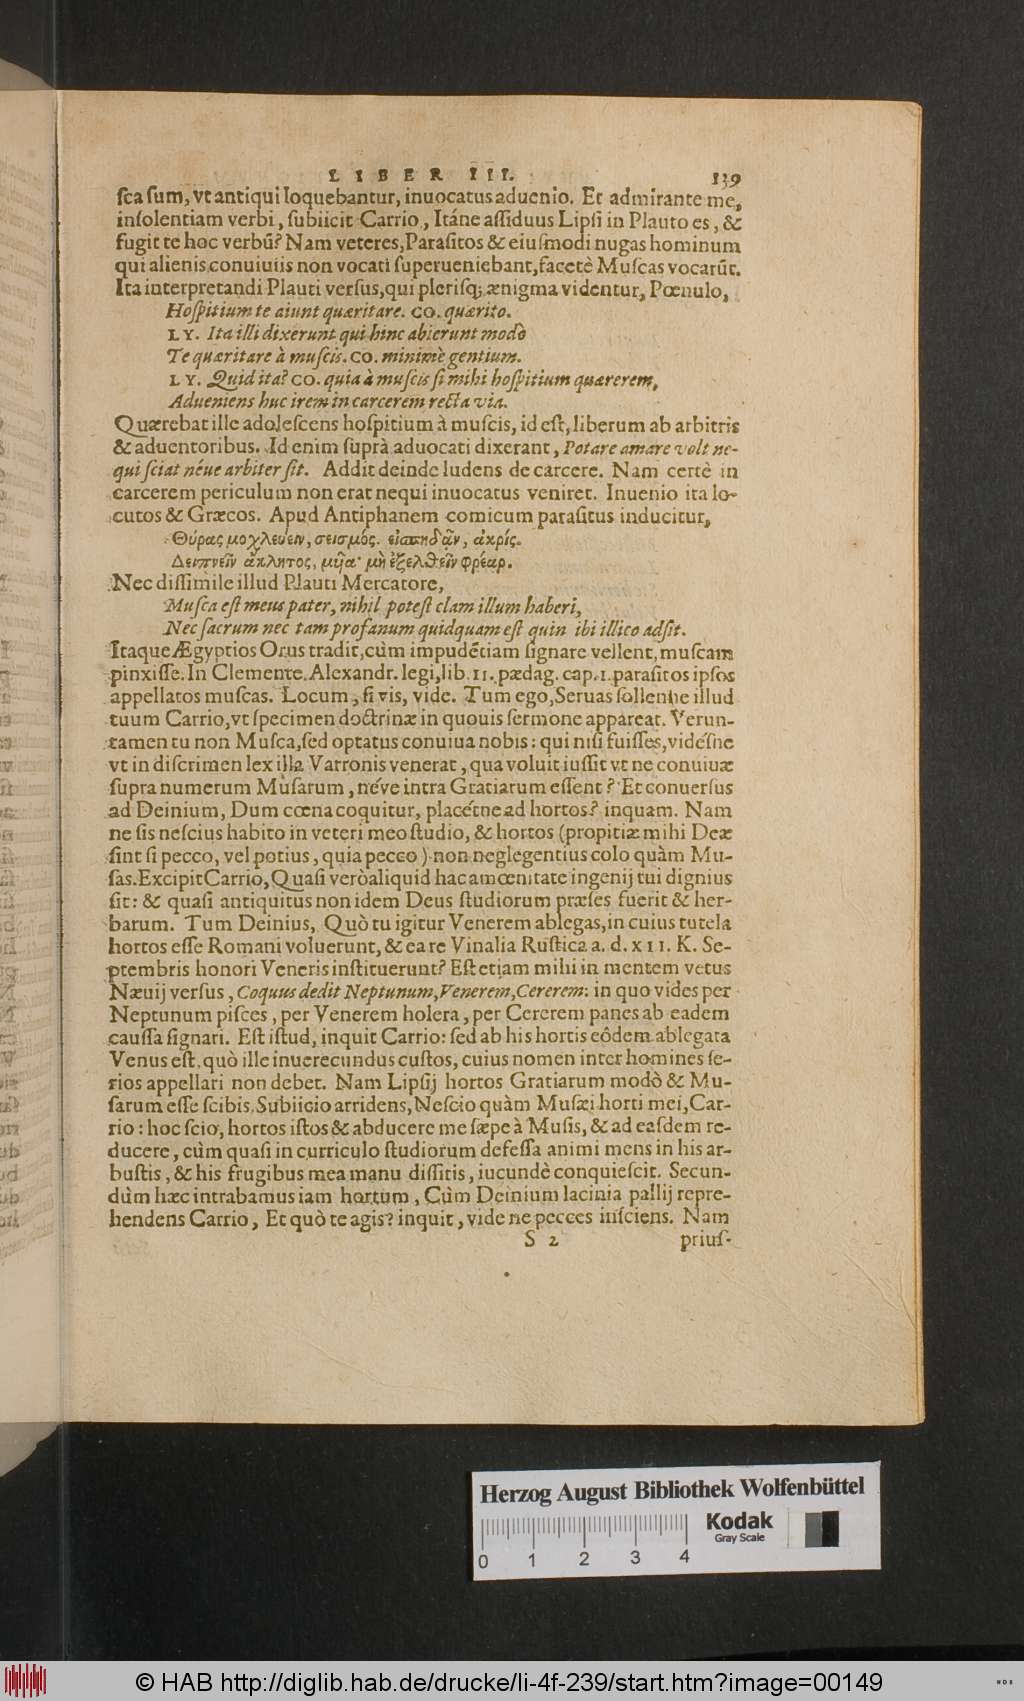 LIBER III. 139
ſca ſum, vt antiqui loquebantur, inuocatus aduenio. Et admirante me,
inſolentiam verbi, ſubiicit Carrio, Itáne aſſiduus Lipſi in Plauto es, &
fugit te hoc verbū? Nam veteres, Paraſitos & eiuſmodi nugas hominum
qui alienis conuiuiis non vocati ſuperueniebant, facetè Muſcas vocarūt.
Ita interpretandi Plauti verſus, qui pleriſq; ænigma videntur, Pœnulo,
Hoſpitium te aiunt quæritare. CO. quærito.
LY. Ita illi dixerunt qui hinc abierunt modò
Te quæritare à muſcis. CO. minimè gentium.
LY. Quid ita? CO. quia à muſcis ſi mihi hoſpitium quærerem,
Adueniens huc irem in carcerem recta via.
Quærebat ille adoleſcens hoſpitium à muſcis, id eſt, liberum ab arbitris
& aduentoribus. Id enim ſuprà aduocati dixerant, Potare amare volt ne-
qui ſciat néue arbiter ſit. Addit deinde ludens de carcere. Nam certè in
carcerem periculum non erat nequi inuocatus veniret. Inuenio ita lo-
cutos & Græcos. Apud Antiphanem comicum paraſitus inducitur,
Θύρας μοχλεύειν, σεισμός. εἰσπηδᾷν, ἀκρίς.
Δειπνεῖν ἄκλητος, μυῖα· μὴ ἐξελθεῖν φρέαρ.
Nec diſſimile illud Plauti Mercatore,
Muſca eſt meus pater, nihil poteſt clam illum haberi,
Nec ſacrum nec tam profanum quidquam eſt quin ibi illico adſit.
Itaque Ægyptios Orus tradit, cùm impudētiam ſignare vellent, muſcam
pinxiſſe. In Clemente Alexandr. legi, lib. 11. pædag. cap. 1. paraſitos ipſos
appellatos muſcas. Locum, ſi vis, vide. Tum ego, Seruas ſollenne illud
tuum Carrio, vt ſpecimen doctrinæ in quouis ſermone appareat. Verun-
tamen tu non Muſca, ſed optatus conuiua nobis: qui niſi fuiſſes, vidéſne
vt in diſcrimen lex illa Varronis venerat, qua voluit iuſſit vt ne conuiuæ
ſupra numerum Muſarum, néve intra Gratiarum eſſent? Et conuerſus
ad Deinium, Dum cœna coquitur, placétne ad hortos? inquam. Nam
ne ſis neſcius habito in veteri meo ſtudio, & hortos (propitiæ mihi Deæ
ſint ſi pecco, vel potius, quia pecco) non neglegentius colo quàm Mu-
ſas. Excipit Carrio, Quaſi verò aliquid hac amœnitate ingenij tui dignius
ſit: & quaſi antiquitus non idem Deus ſtudiorum præſes fuerit & her-
barum. Tum Deinius, Quò tu igitur Venerem ablegas, in cuius tutela
hortos eſſe Romani voluerunt, & ea re Vinalia Ruſtica a. d. XII. K. Se-
ptembris honori Veneris inſtituerunt? Eſt etiam mihi in mentem vetus
Næuij verſus, Coquus dedit Neptunum, Venerem, Cererem: in quo vides per
Neptunum piſces, per Venerem holera, per Cererem panes ab eadem
cauſſa ſignari. Eſt iſtud, inquit Carrio: ſed ab his hortis eôdem ablegata
Venus eſt, quò ille inuerecundus cuſtos, cuius nomen inter homines ſe-
rios appellari non debet. Nam Lipſij hortos Gratiarum modò & Mu-
ſarum eſſe ſcibis. Subiicio arridens, Neſcio quàm Muſæi horti mei, Car-
rio: hoc ſcio, hortos iſtos & abducere me ſæpe à Muſis, & ad eaſdem re-
ducere, cùm quaſi in curriculo ſtudiorum defeſſa animi mens in his ar-
buſtis, & his frugibus mea manu diſſitis, iucundè conquieſcit. Secun-
dùm hæc intrabamus iam hortum, Cùm Deinium lacinia pallij repre-
hendens Carrio, Et quò te agis? inquit, vide ne pecces inſciens. Nam
S 2 priuſ-
Herzog August Bibliothek Wolfenbüttel
Kodak
Gray Scale
0 1 2 3 4
© HAB http://diglib.hab.de/drucke/li-4f-239/start.htm?image=00149